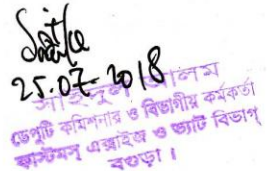 25.07.2018
সাইদুল আলম
ডেপুটি কমিশনার ও বিভাগীয় কর্মকর্তা
কাস্টমস্ এক্সাইজ ও ভ্যাট বিভাগ
বগুড়া।